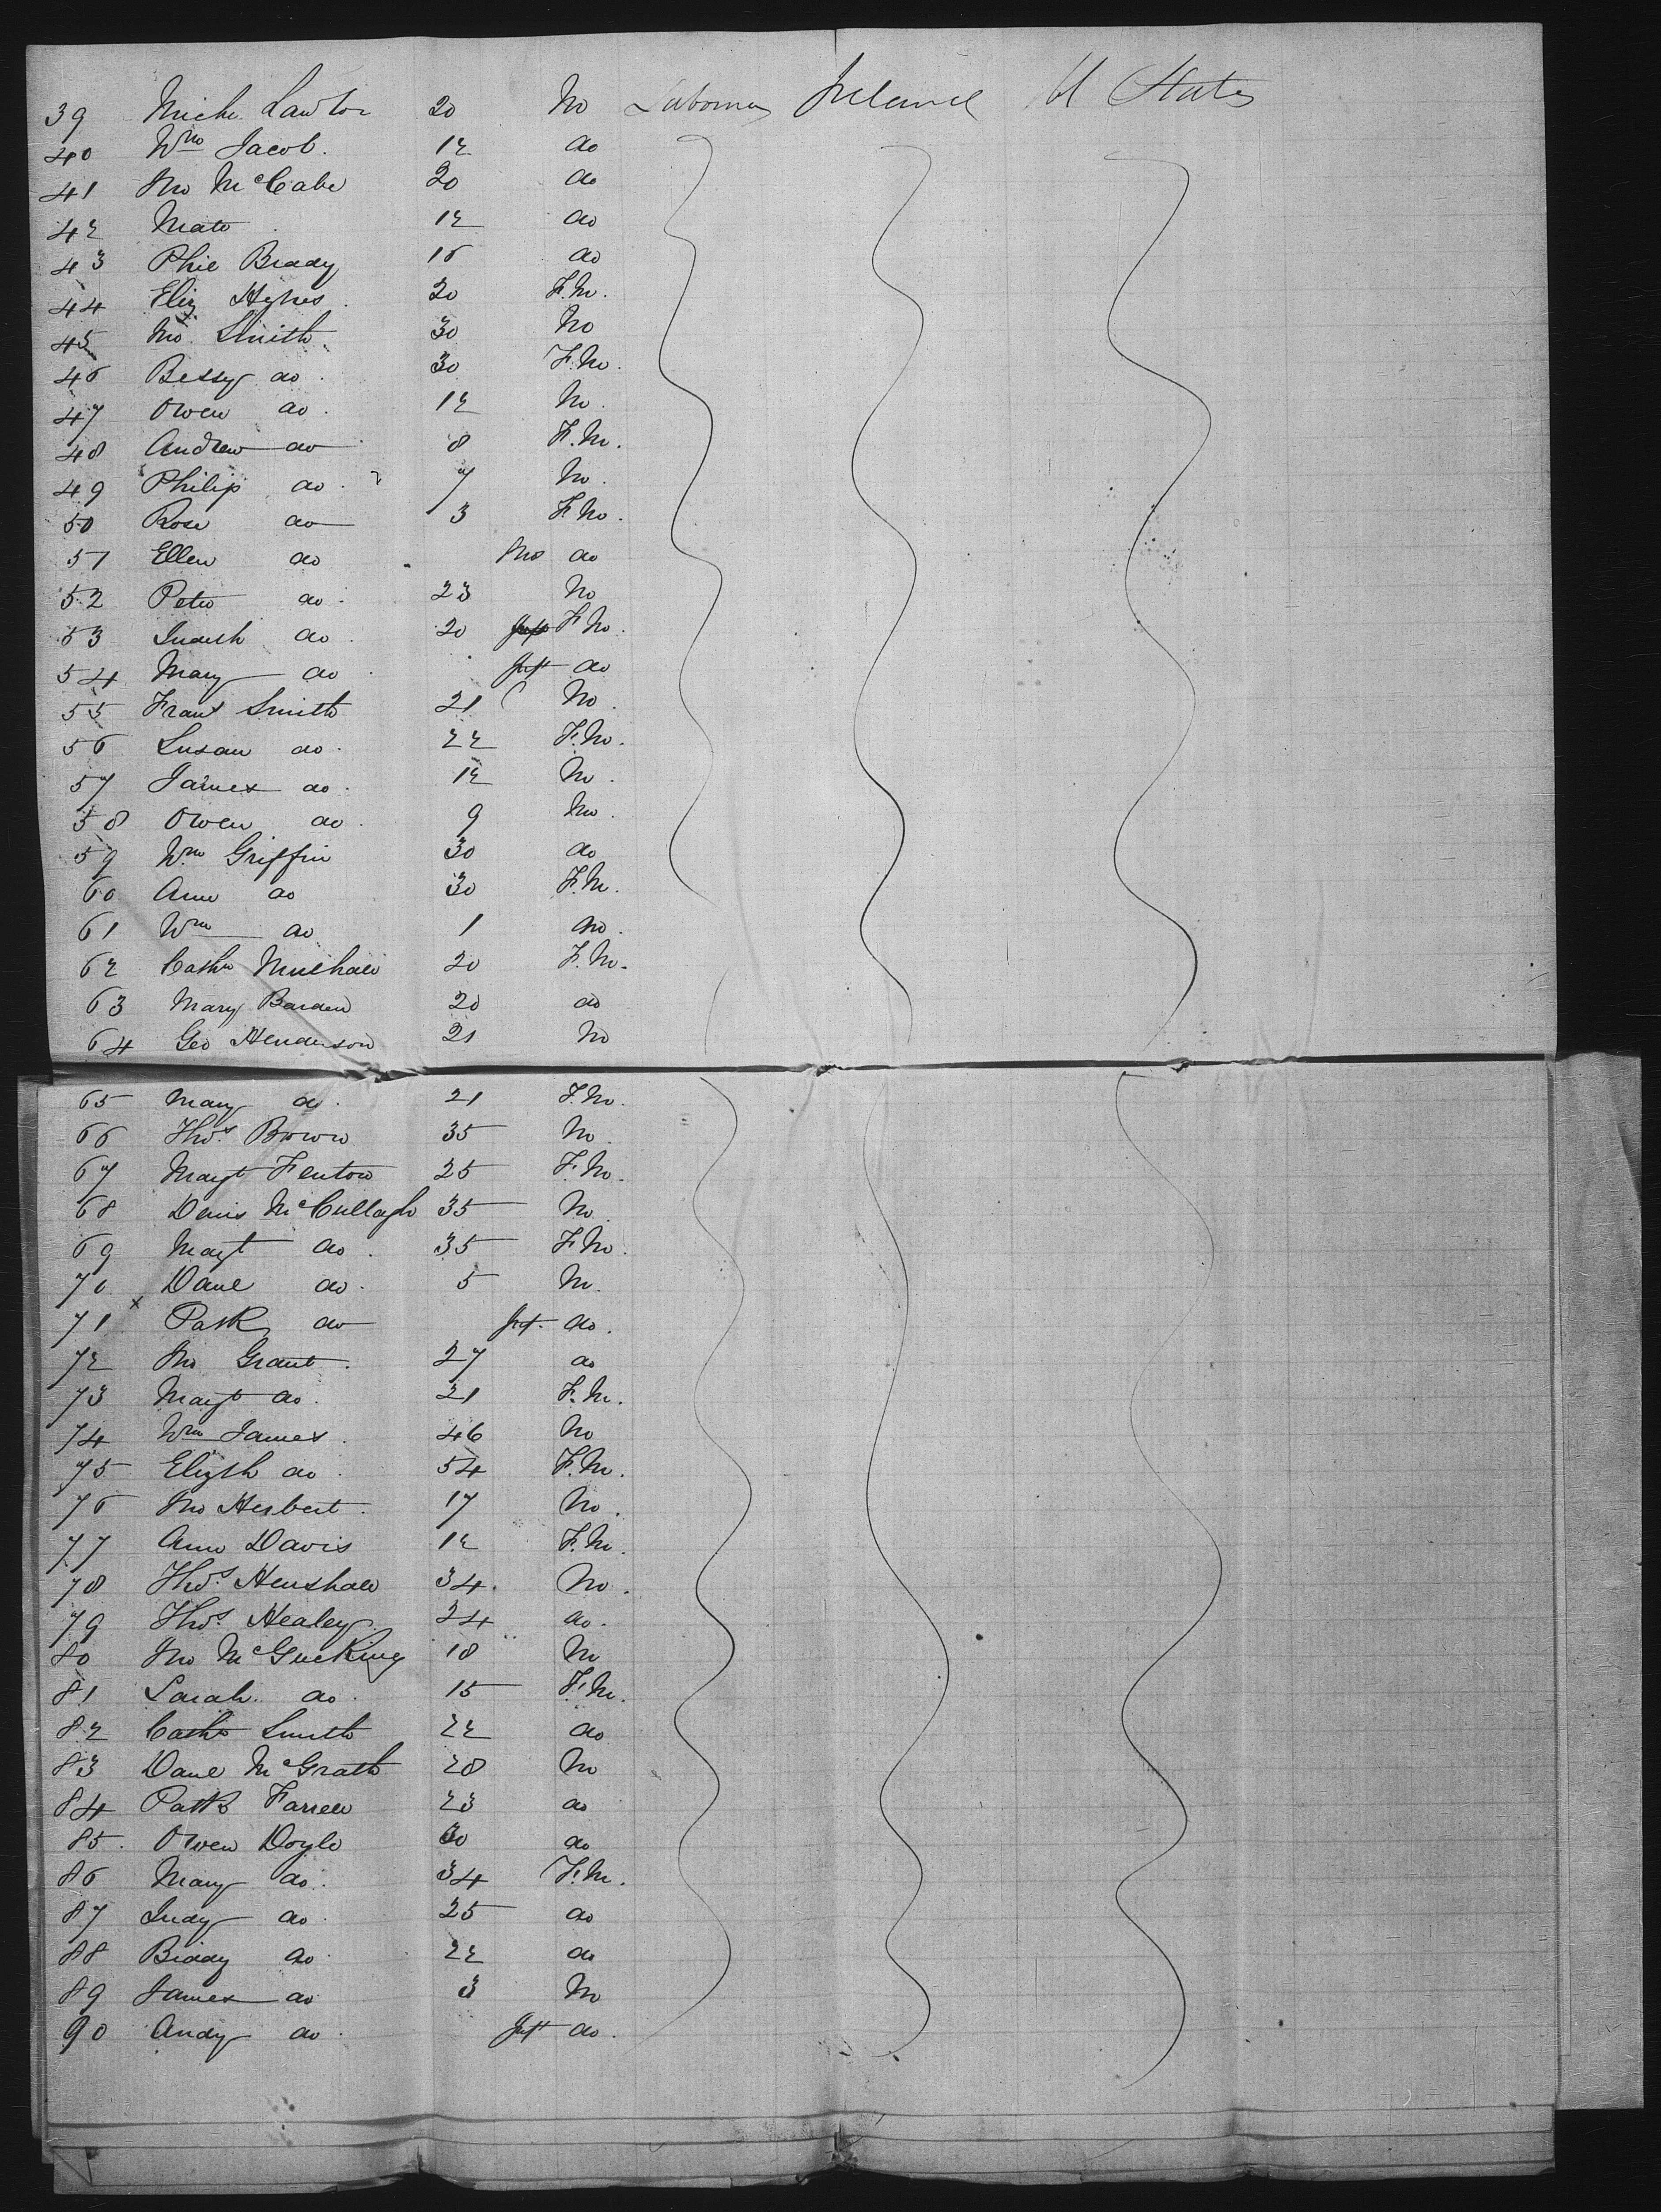 39 Michl Lawlor 20 M Laborers Ireland U States
40 Wm Jacob. 12 do
41 Jno McCabe 20 do
42 Mat 12 do
43 Phil Brady 16 do
44 Eliz Hynes. 20 F.M.
45 Jno Smith. 30 M
46 Bessy do. 30 F.M.
47 Owen do. 12 M.
48 Andrew do 8 F.M.
49 Philip do. 7 M.
50 Rose do 3 F.M.
51 Ellen do do
52 Peter do. 23 M
53 Judith do. 20 F.M.
54 Mary do Inft do
55 Frans Smith 21 M.
56 Susan do. 22 F.M.
57 James do. 12 M.
58 Owen do. 9 M.
59 Wm Griffin 30 do
60 Ann do 30 F.M.
61 Wm do 1 M.
62 Cathn Mulhall 20 F.M.
63 Mary Barden 20 do
64 Geo Henderson 21 M
65 Mary do. 21 F.M.
66 Thos. Brown 35 M
67 Margt Fenton 25 F.M.
68 Denis McCullagh 35 M.
69 Margt do. 35 F.M.
70 Danl do. 5 M.
71 x Patk do Inft. do.
72 Jno Grant. 27 do
73 Margt do. 21 F.M.
74 Wm James. 46 M
75 Elizth do. 54 F.M.
76 Jno Herbert. 17 M.
77 Ann Davis 12 F.M.
78 Thos. Henshall 34. M.
79 Thos. Healey. 24 do.
80 Jno McGucking 18 M
81 Sarah. do. 15 F.M.
82 Cathn Smith 22 do
83 Danl McGrath 28 M
84 Patk Farrell 23 do
85. Owen Doyle 30 do
86 Mary do. 34 F.M.
87 Judy do. 25 do
88 Biddy do 22 do
89 James do 3 M
90 Andy do. Inft do.